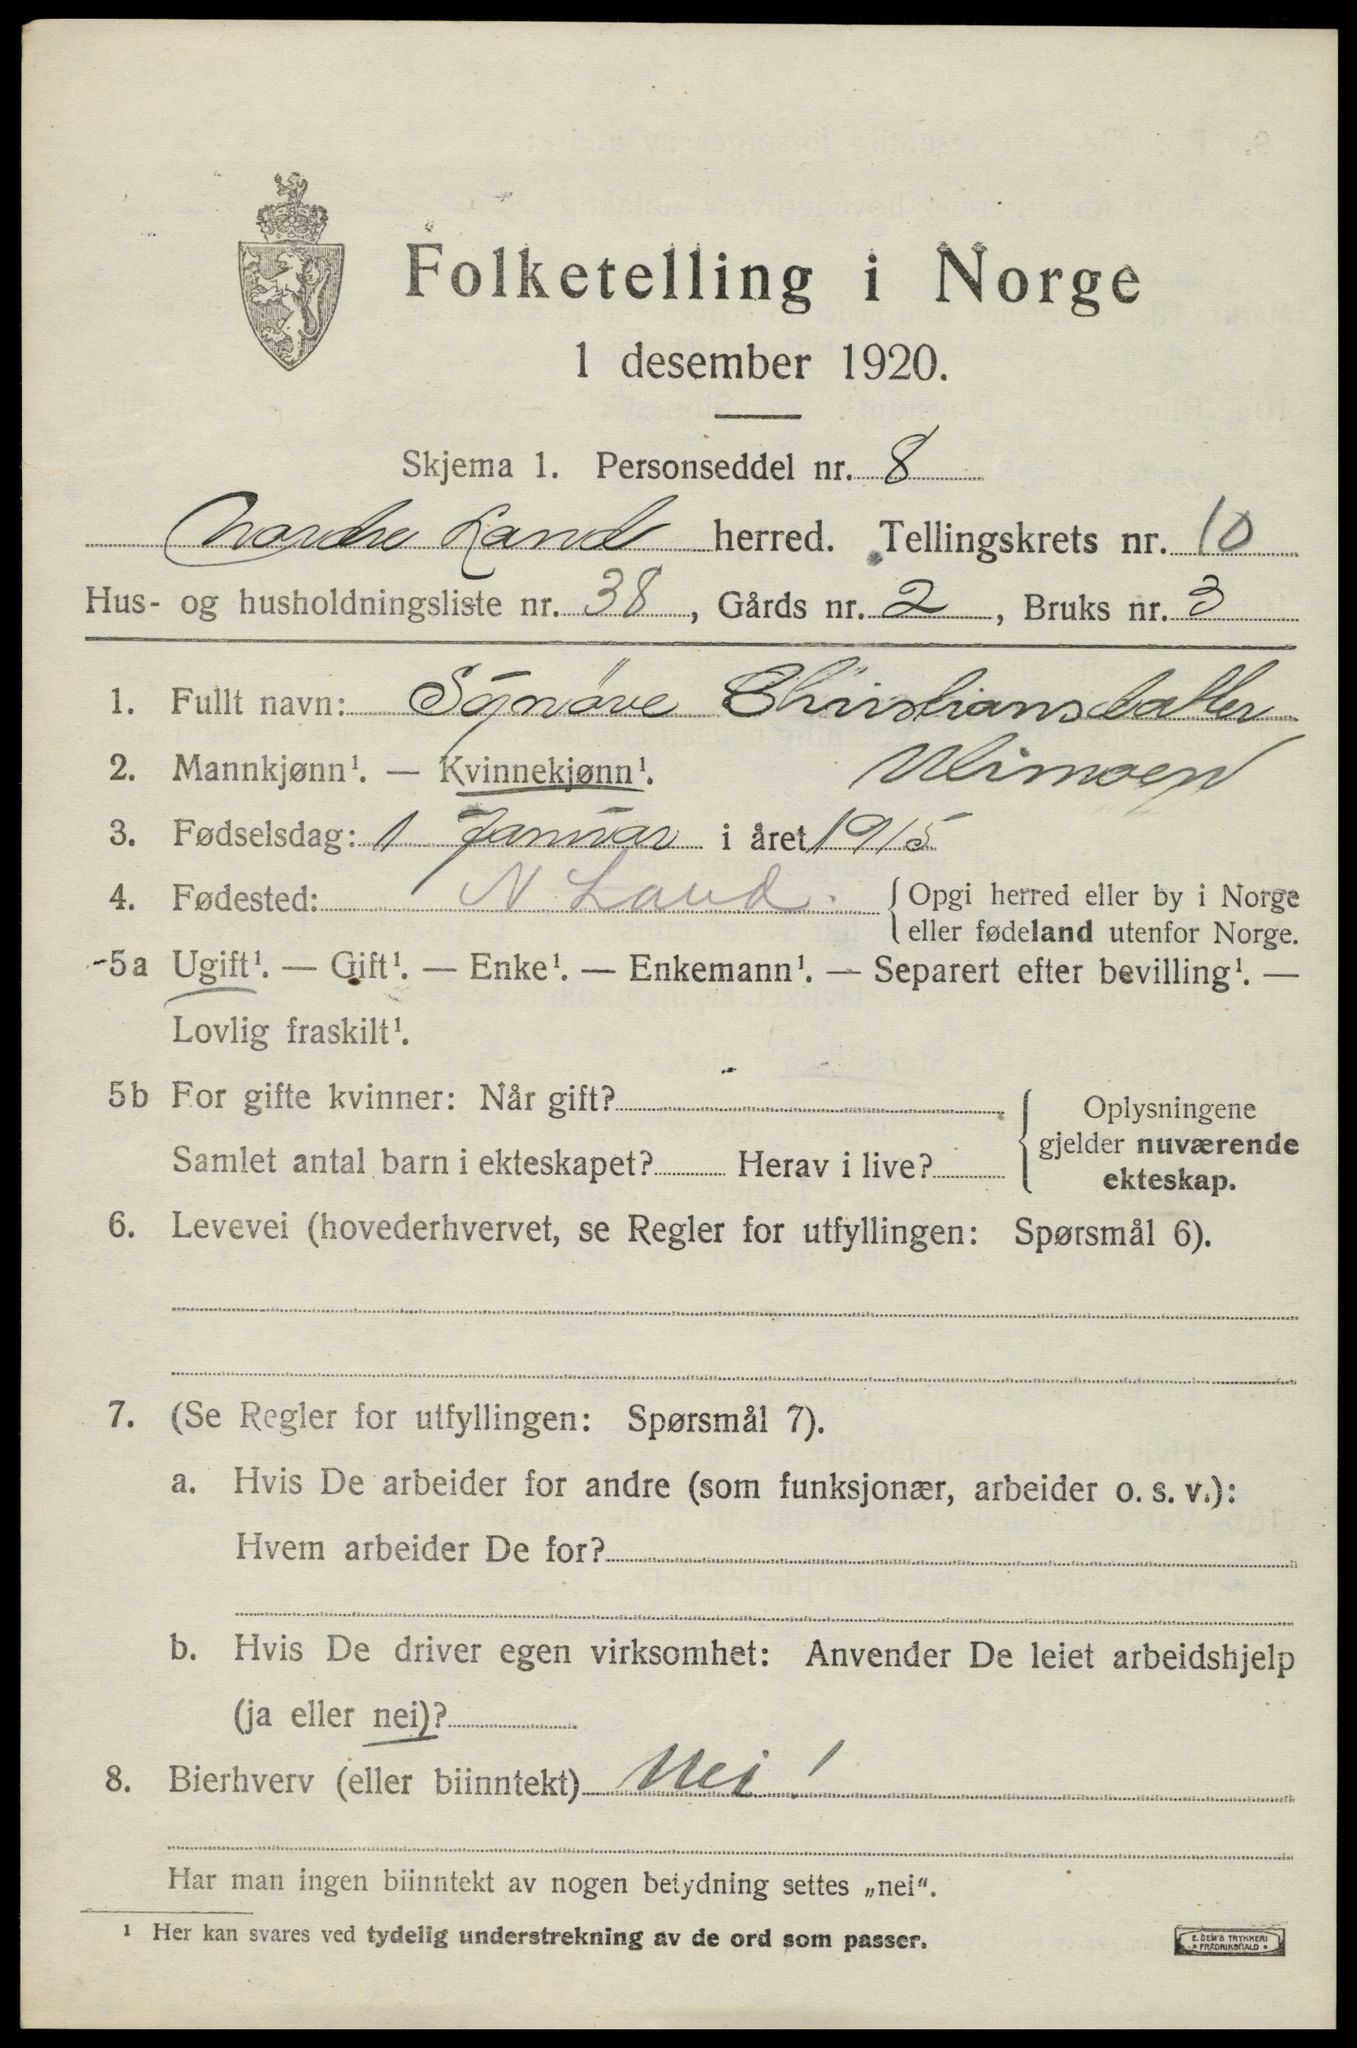 Folketelling i Norge
1 desember 1920.
Skjema 1. Personseddel nr. 8
Nordre Land herred. Tellingskrets nr. 10
Hus- og husholdningsliste nr. 38, Gårds nr. 2, Bruks nr. 3
1. Fullt navn: Synöve Christiansdatter
2. Mannkjønn¹. — Kvinnekjønn¹.
3. Fødselsdag: 1 Januar i året 1915
4. Fødested: N Land. Opgi herred eller by i Norge
eller fødeland utenfor Norge.
5a Ugift¹. — Gift¹. — Enke¹. — Enkemann¹. — Separert efter bevilling¹. —
Lovlig fraskilt¹.
5b For gifte kvinner: Når gift?
Samlet antal barn i ekteskapet? Herav i live?
Oplysningene
gjelder nuværende
ekteskap.
6. Levevei (hovederhvervet, se Regler for utfyllingen: Spørsmål 6).
7. (Se Regler for utfyllingen: Spørsmål 7).
a. Hvis De arbeider for andre (som funksjonær, arbeider o. s. v.):
Hvem arbeider De for?
b. Hvis De driver egen virksomhet: Anvender De leiet arbeidshjelp
(ja eller nei)?
8. Bierhverv (eller biinntekt) Nei!
Har man ingen biinntekt av nogen betydning settes „nei“.
¹ Her kan svares ved tydelig understrekning av de ord som passer.
E. SEM'S TRYKKERI
FREDRIKSHALD